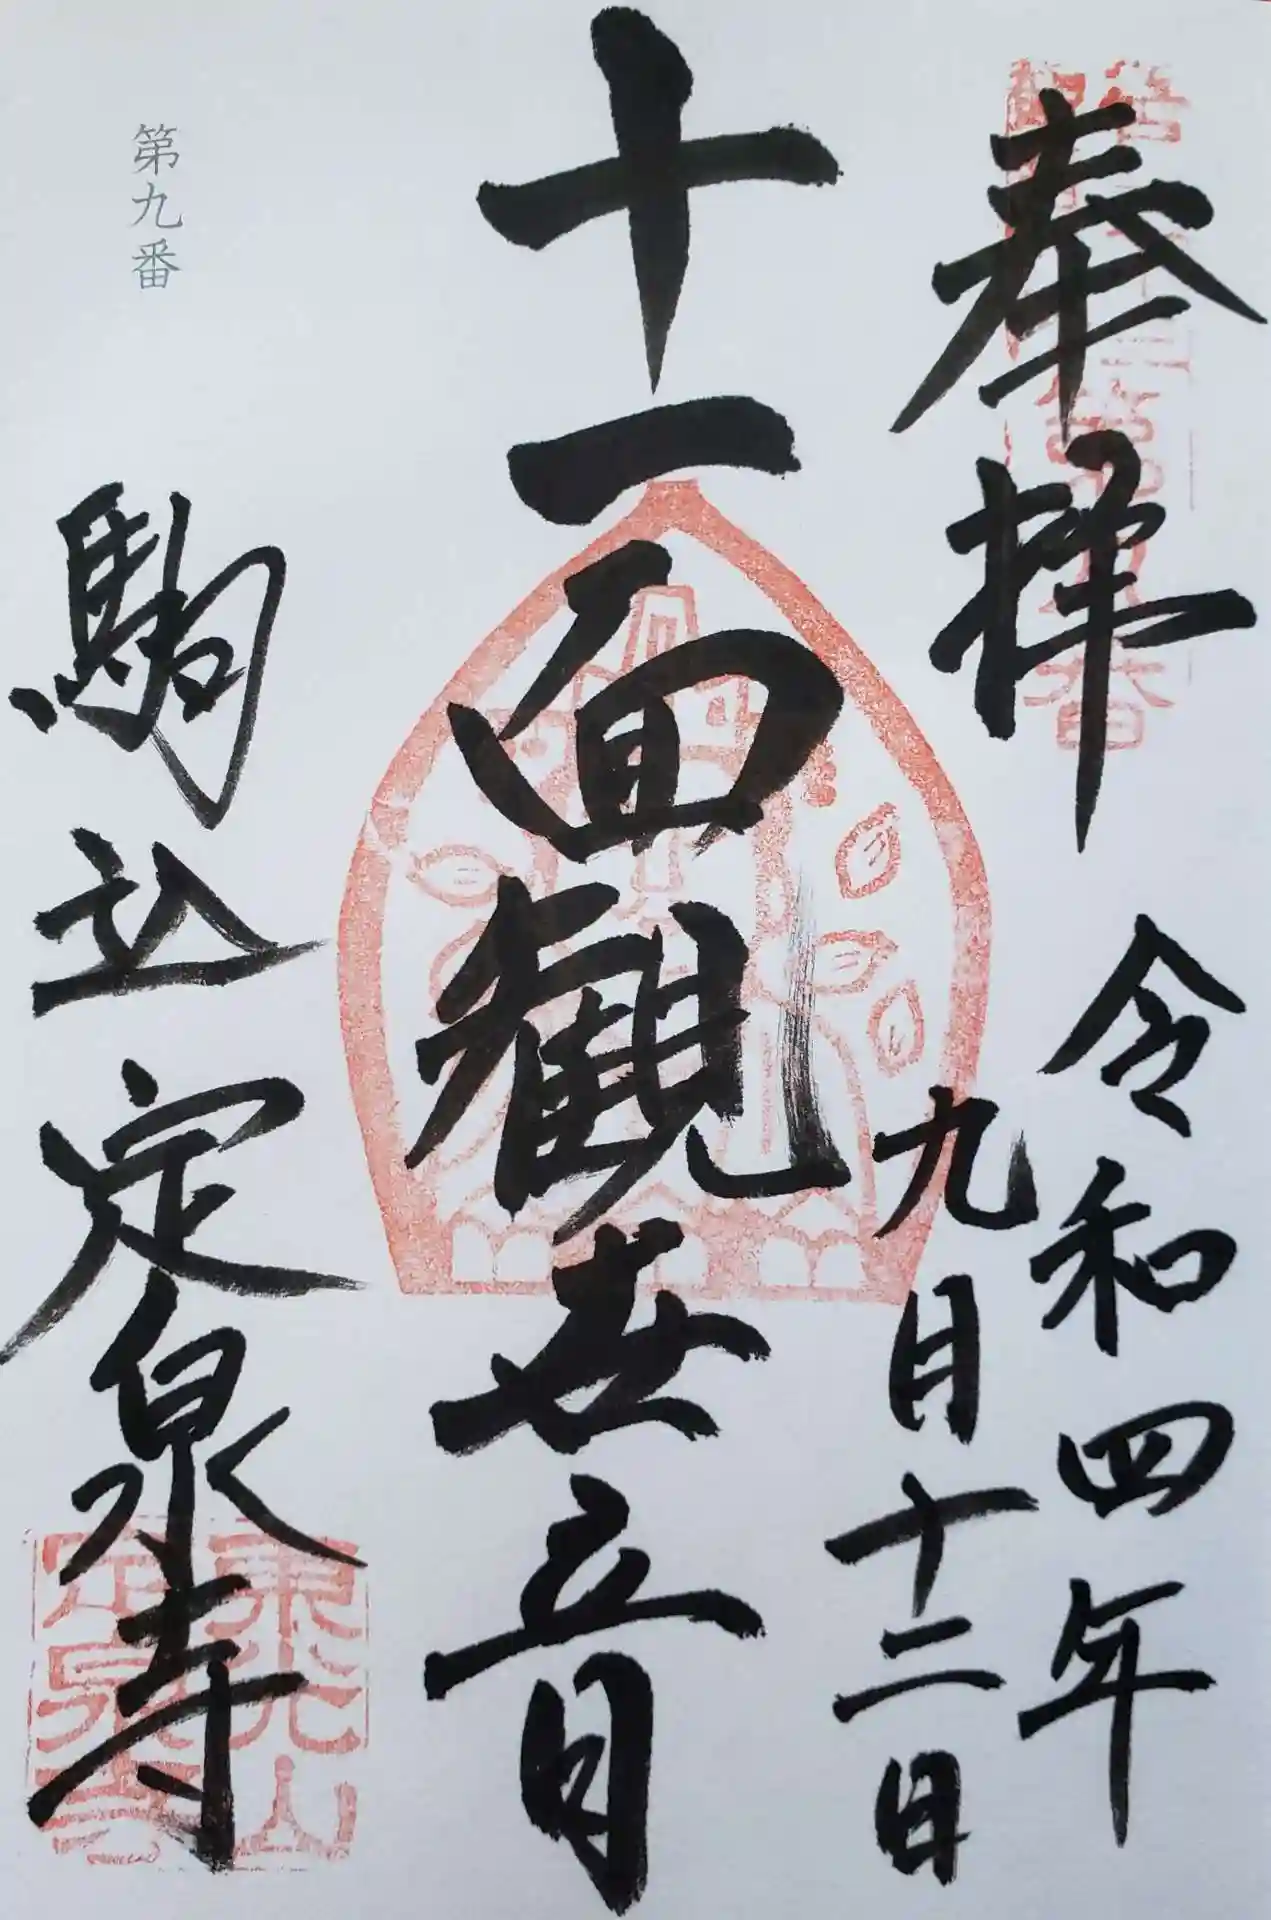 奉拝
令和四年
九月十二日
十一面観世音
第九番
駒込定泉寺
東光山
定泉寺